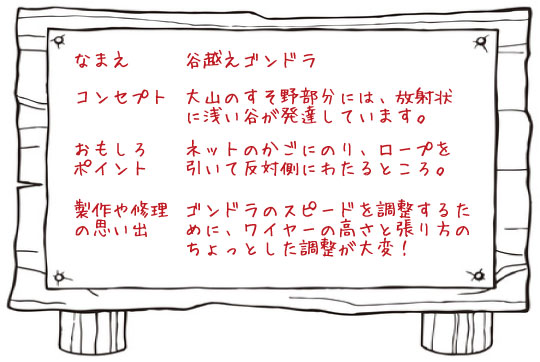 なまえ 谷越えゴンドラ
コンセプト 大山のすそ野部分には、放射状
に浅い谷が発達しています。
おもしろ ネットのかごにのり、ロープを
ポイント 引いて反対側にわたるところ。
製作や修理 ゴンドラのスピードを調整するた
の思い出 めに、ワイヤーの高さと張り方の
ちょっとした調整が大変！